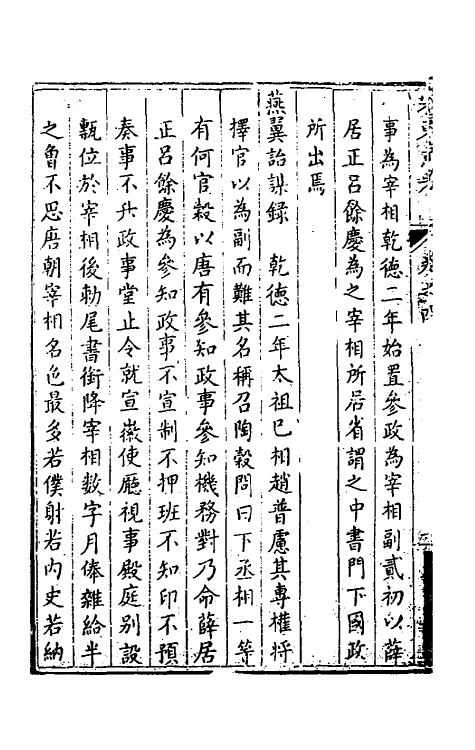 事為宰相乾德二年始置參政為宰相副貳初以薛
居正呂餘慶為之宰相所居省謂之中書門下國政
所出焉
燕翼詒謀録　乾德二年太祖已相趙普慮其專權將
擇官以為副而難其名稱召陶穀問曰下丞相一等
有何官穀以唐有參知政事參知機務對乃命薛居
正呂餘慶為參知政事不宣制不押班不知印不預
奏事不升政事堂止令就宣徽使廳視事殿庭别設
甎位於宰相後勅尾書銜降宰相數字月俸雜給半
之魯不思唐朝宰相名色最多若僕射若内史若納